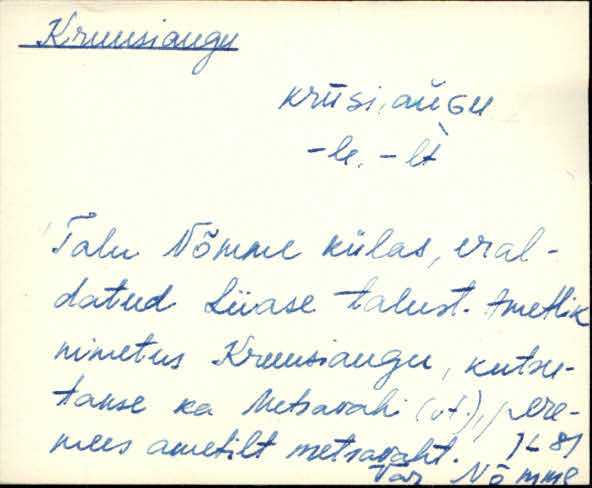 Kruusiaugu
krūsi, aùgu
-le, -lt
Talu Nõmme külas, eral-
datud Liivase talust. Ametlik
nimetus Kruusiaugu, kutsu-
takse ka Metsavahi (vt.), pere-
mees ametilt metsavaht.
81
Nõmme